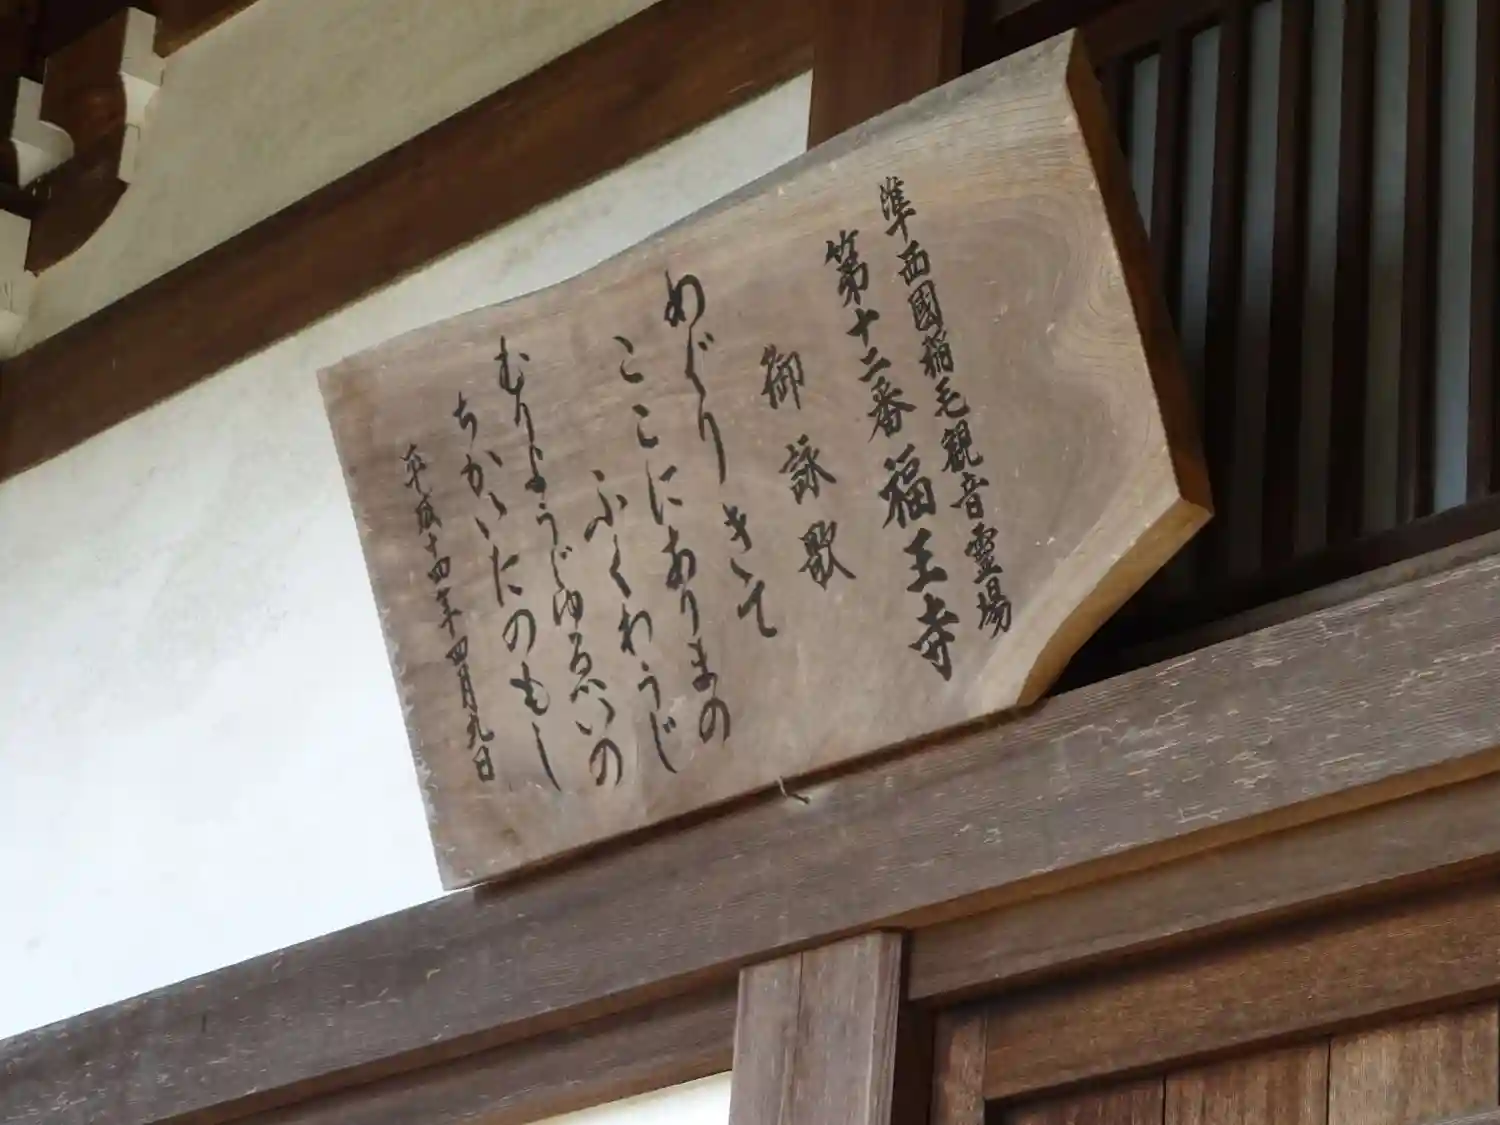 準西國稲毛観音霊場
第十二番 福王寺
御詠歌
めぐりきて
ここにありまの
ふくわうじ
むりようじゆるいの
ちかいたのもし
平成十四年四月九日